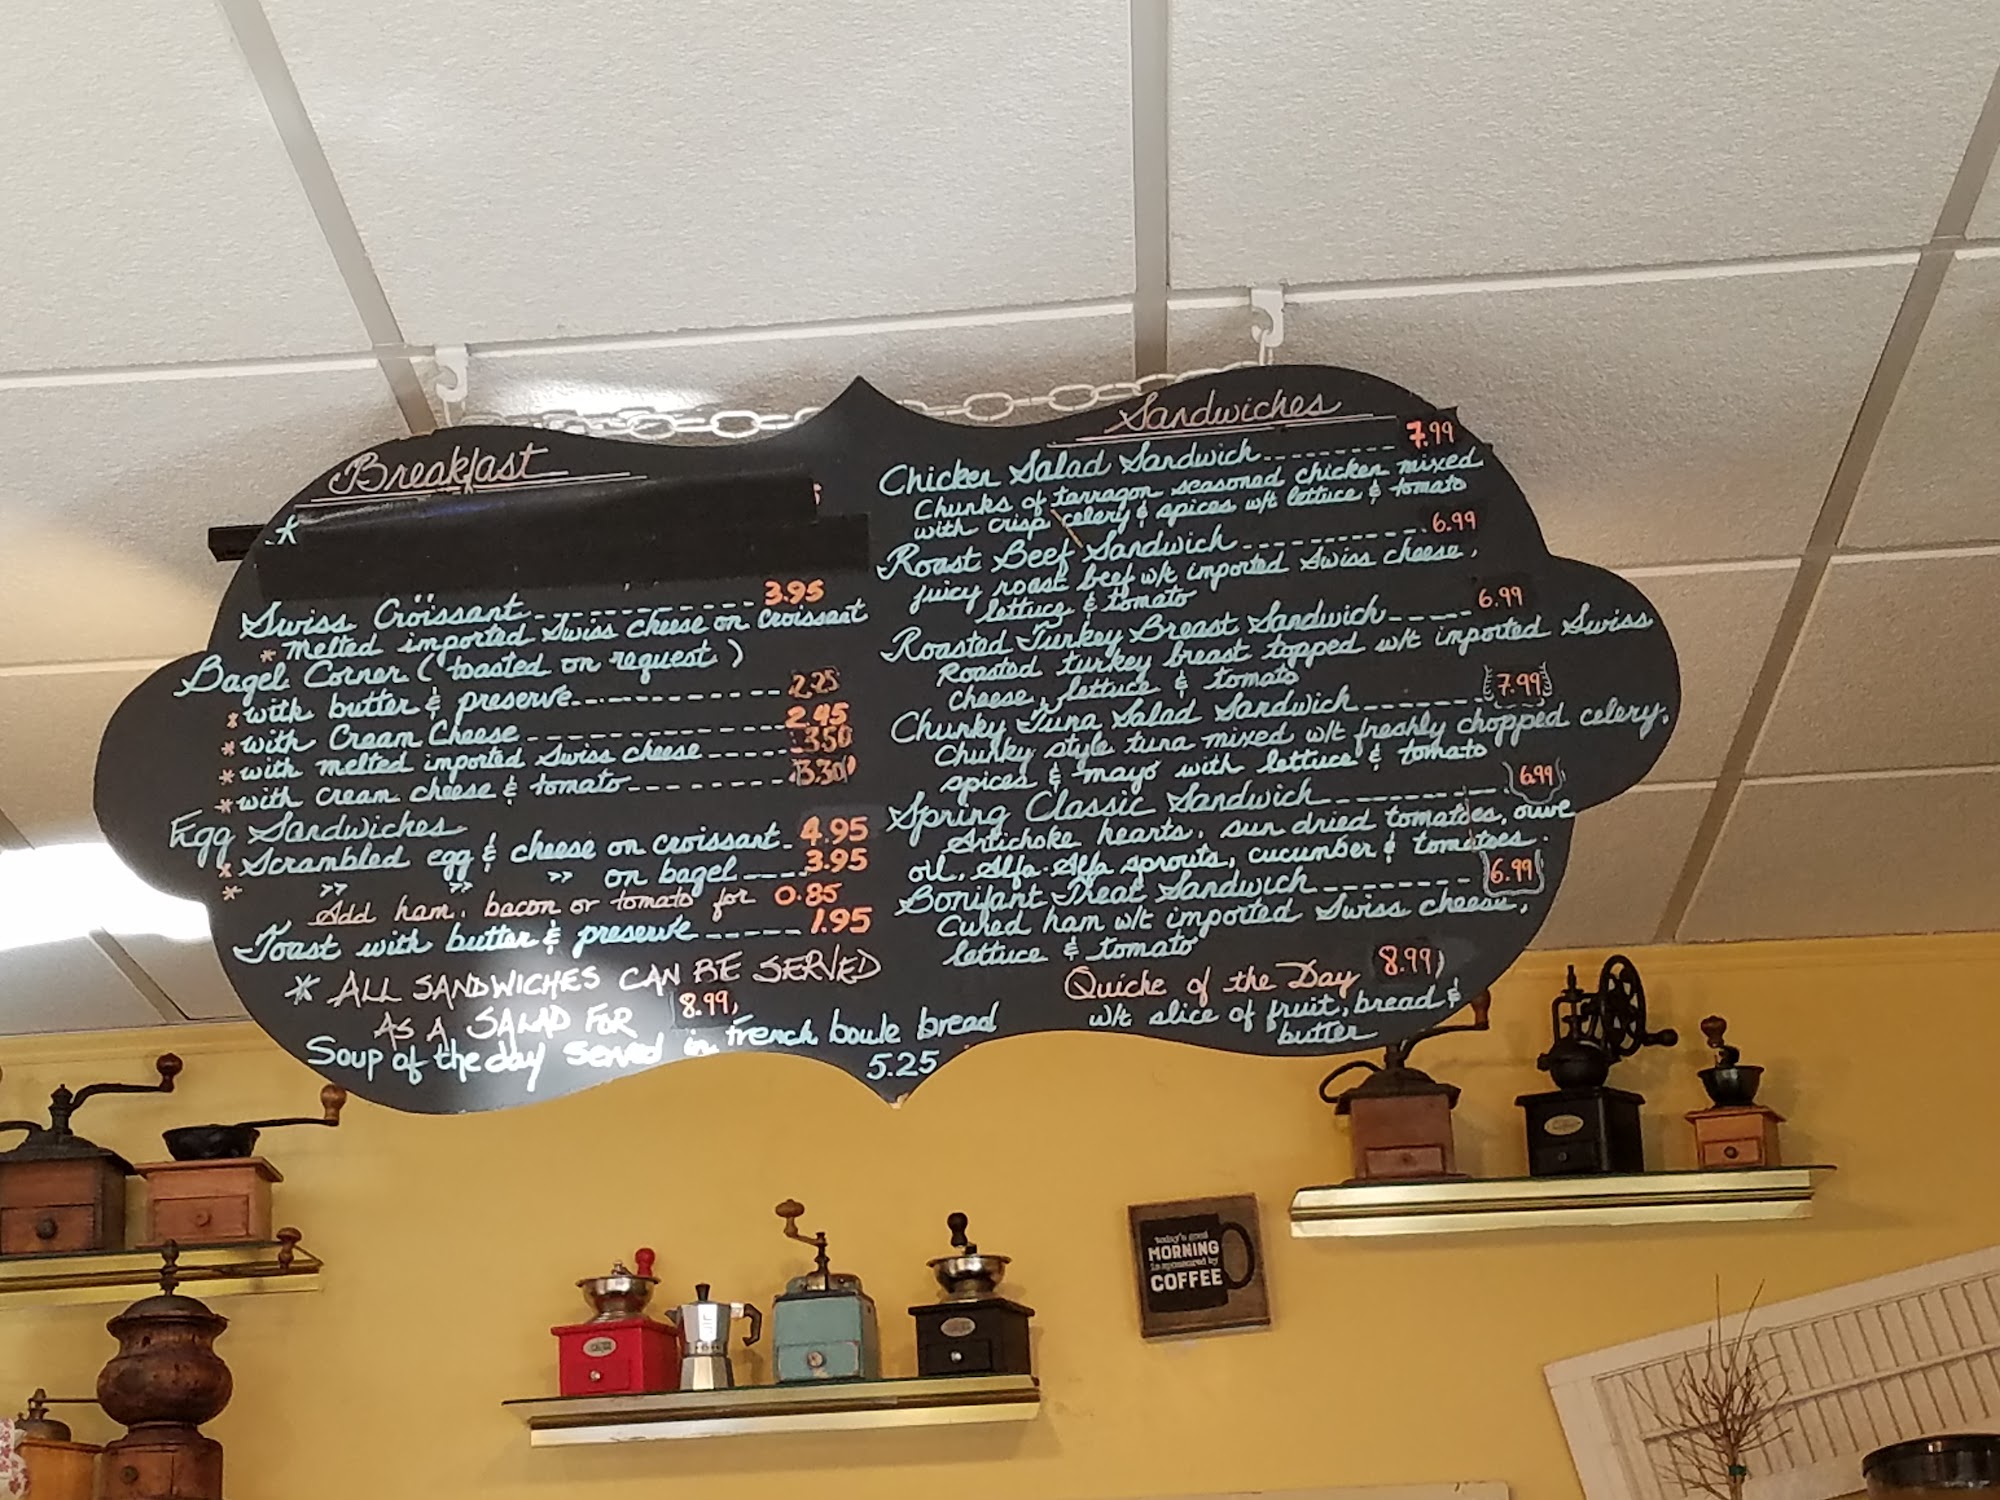 Breakfast
*
Swiss Croïssant 3.95
* melted imported Swiss cheese on croissant
Bagel Corner (toasted on request)
* with butter & preserve 2.25
* with Cream Cheese 2.95
* with melted imported Swiss cheese 3.50
* with cream cheese & tomato 3.30
Egg Sandwiches
* Scrambled egg & cheese on croissant 4.95
* " " " on bagel 3.95
Add ham, bacon or tomato for 0.85
Toast with butter & preserve 1.95
* ALL SANDWICHES CAN BE SERVED
AS A SALAD FOR 8.99
Soup of the day served in french boule bread
5.25
Sandwiches
Chicken Salad Sandwich 7.99
Chunks of tarragon seasoned chicken mixed
with crisp celery & spices w/t lettuce & tomato
Roast Beef Sandwich 6.99
juicy roast beef w/t imported Swiss cheese,
lettuce & tomato
Roasted Turkey Breast Sandwich 6.99
Roasted turkey breast topped w/t imported Swiss
cheese, lettuce & tomato
Chunky Tuna Salad Sandwich 7.99
Chunky style tuna mixed w/t freshly chopped celery,
spices & mayo with lettuce & tomato
Spring Classic Sandwich 6.99
Artichoke hearts, sun dried tomatoes, olive
oil, Alfa-Alfa sprouts, cucumber & tomatoes.
Bonifant Treat Sandwich 6.99
Cured ham w/t imported Swiss cheese,
lettuce & tomato
Quiche of the Day 8.99
w/t slice of fruit, bread &
butter
today's good
MORNING
is sponsored by
COFFEE